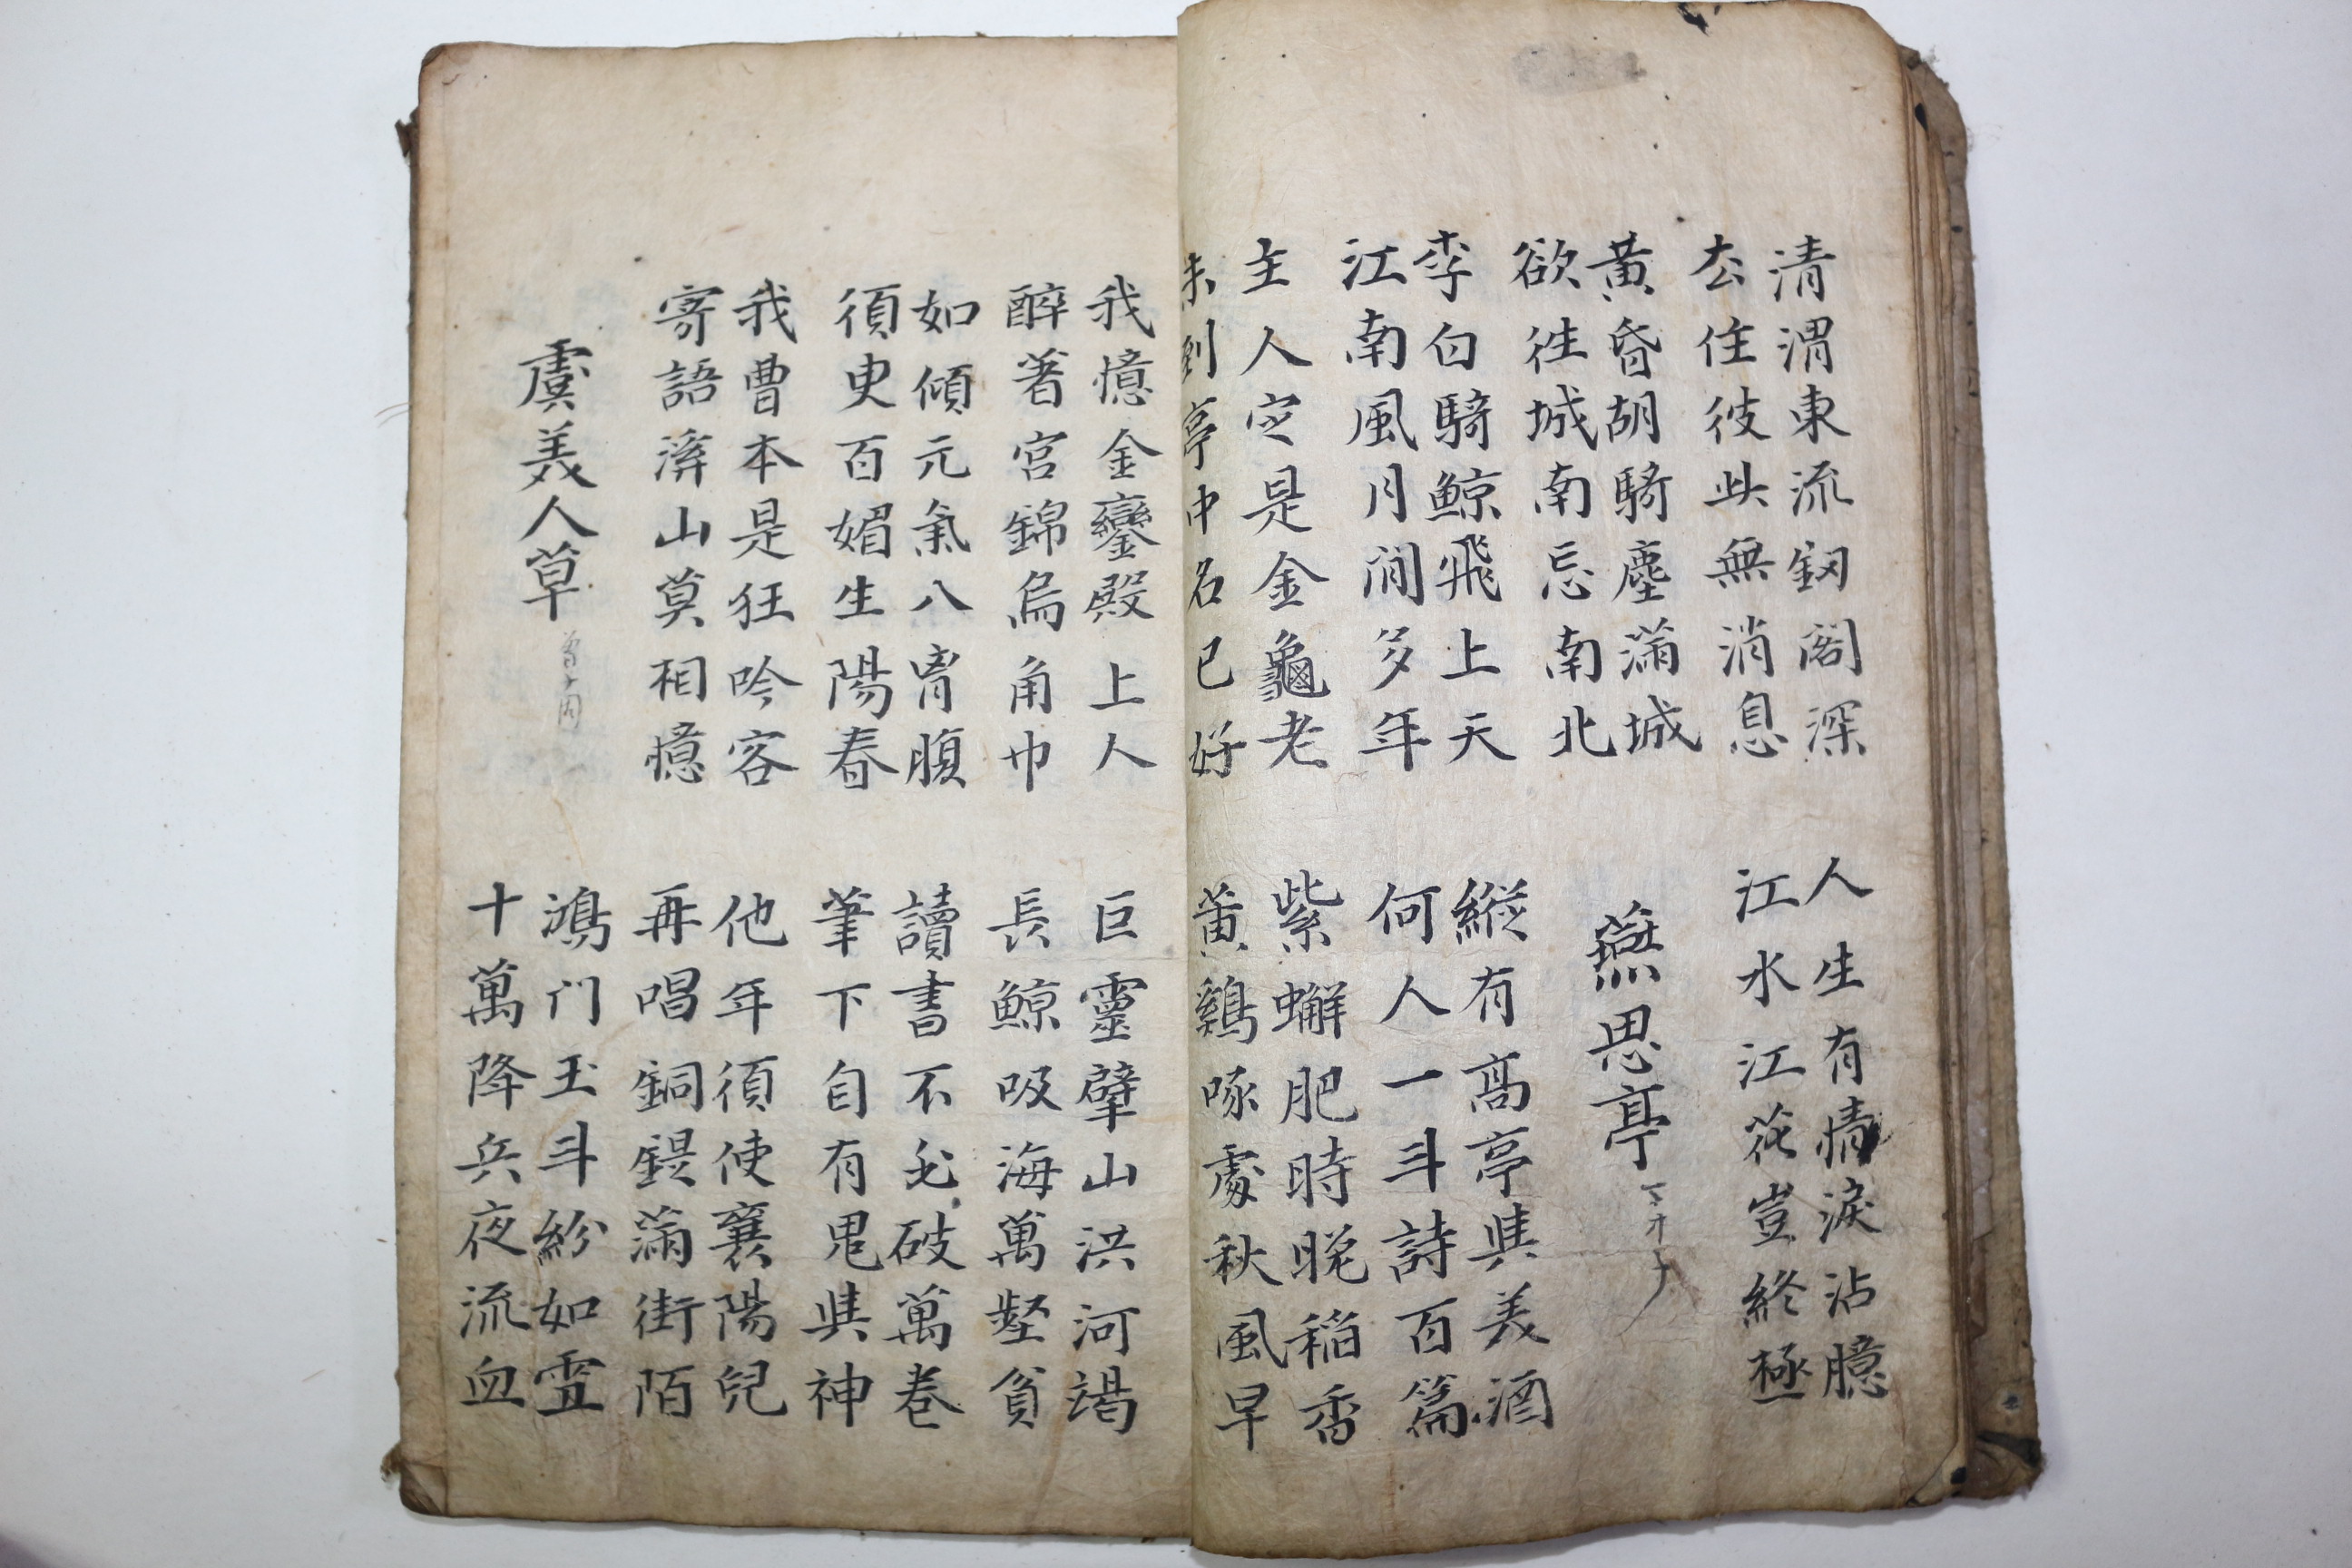 清渭東流釼閣深
去住彼此無消息
人生有情淚沾臆
江水江花豈終極
黃昏胡騎塵滿城
欲往城南忘南北
蕪思亭
李白騎鯨飛上天
江南風月閒多年
縱有高亭與美酒
何人一斗詩百篇
主人定是金龜老
未到亭中名已好
紫蠏肥時晚稻香
黃鷄啄處秋風早
我憶金鑾殿上人
醉著宮錦烏角巾
巨靈擘山洪河竭
長鯨吸海萬壑貧
如傾元氣入胷腹
須臾百媚生陽春
讀書不必破萬卷
筆下自有鬼與神
我曹本是狂吟客
寄語溪山莫相憶
他年須使襄陽兒
再唱銅鍉滿街陌
虞美人草
曾子固
鴻門玉斗紛如雪
十萬降兵夜流血